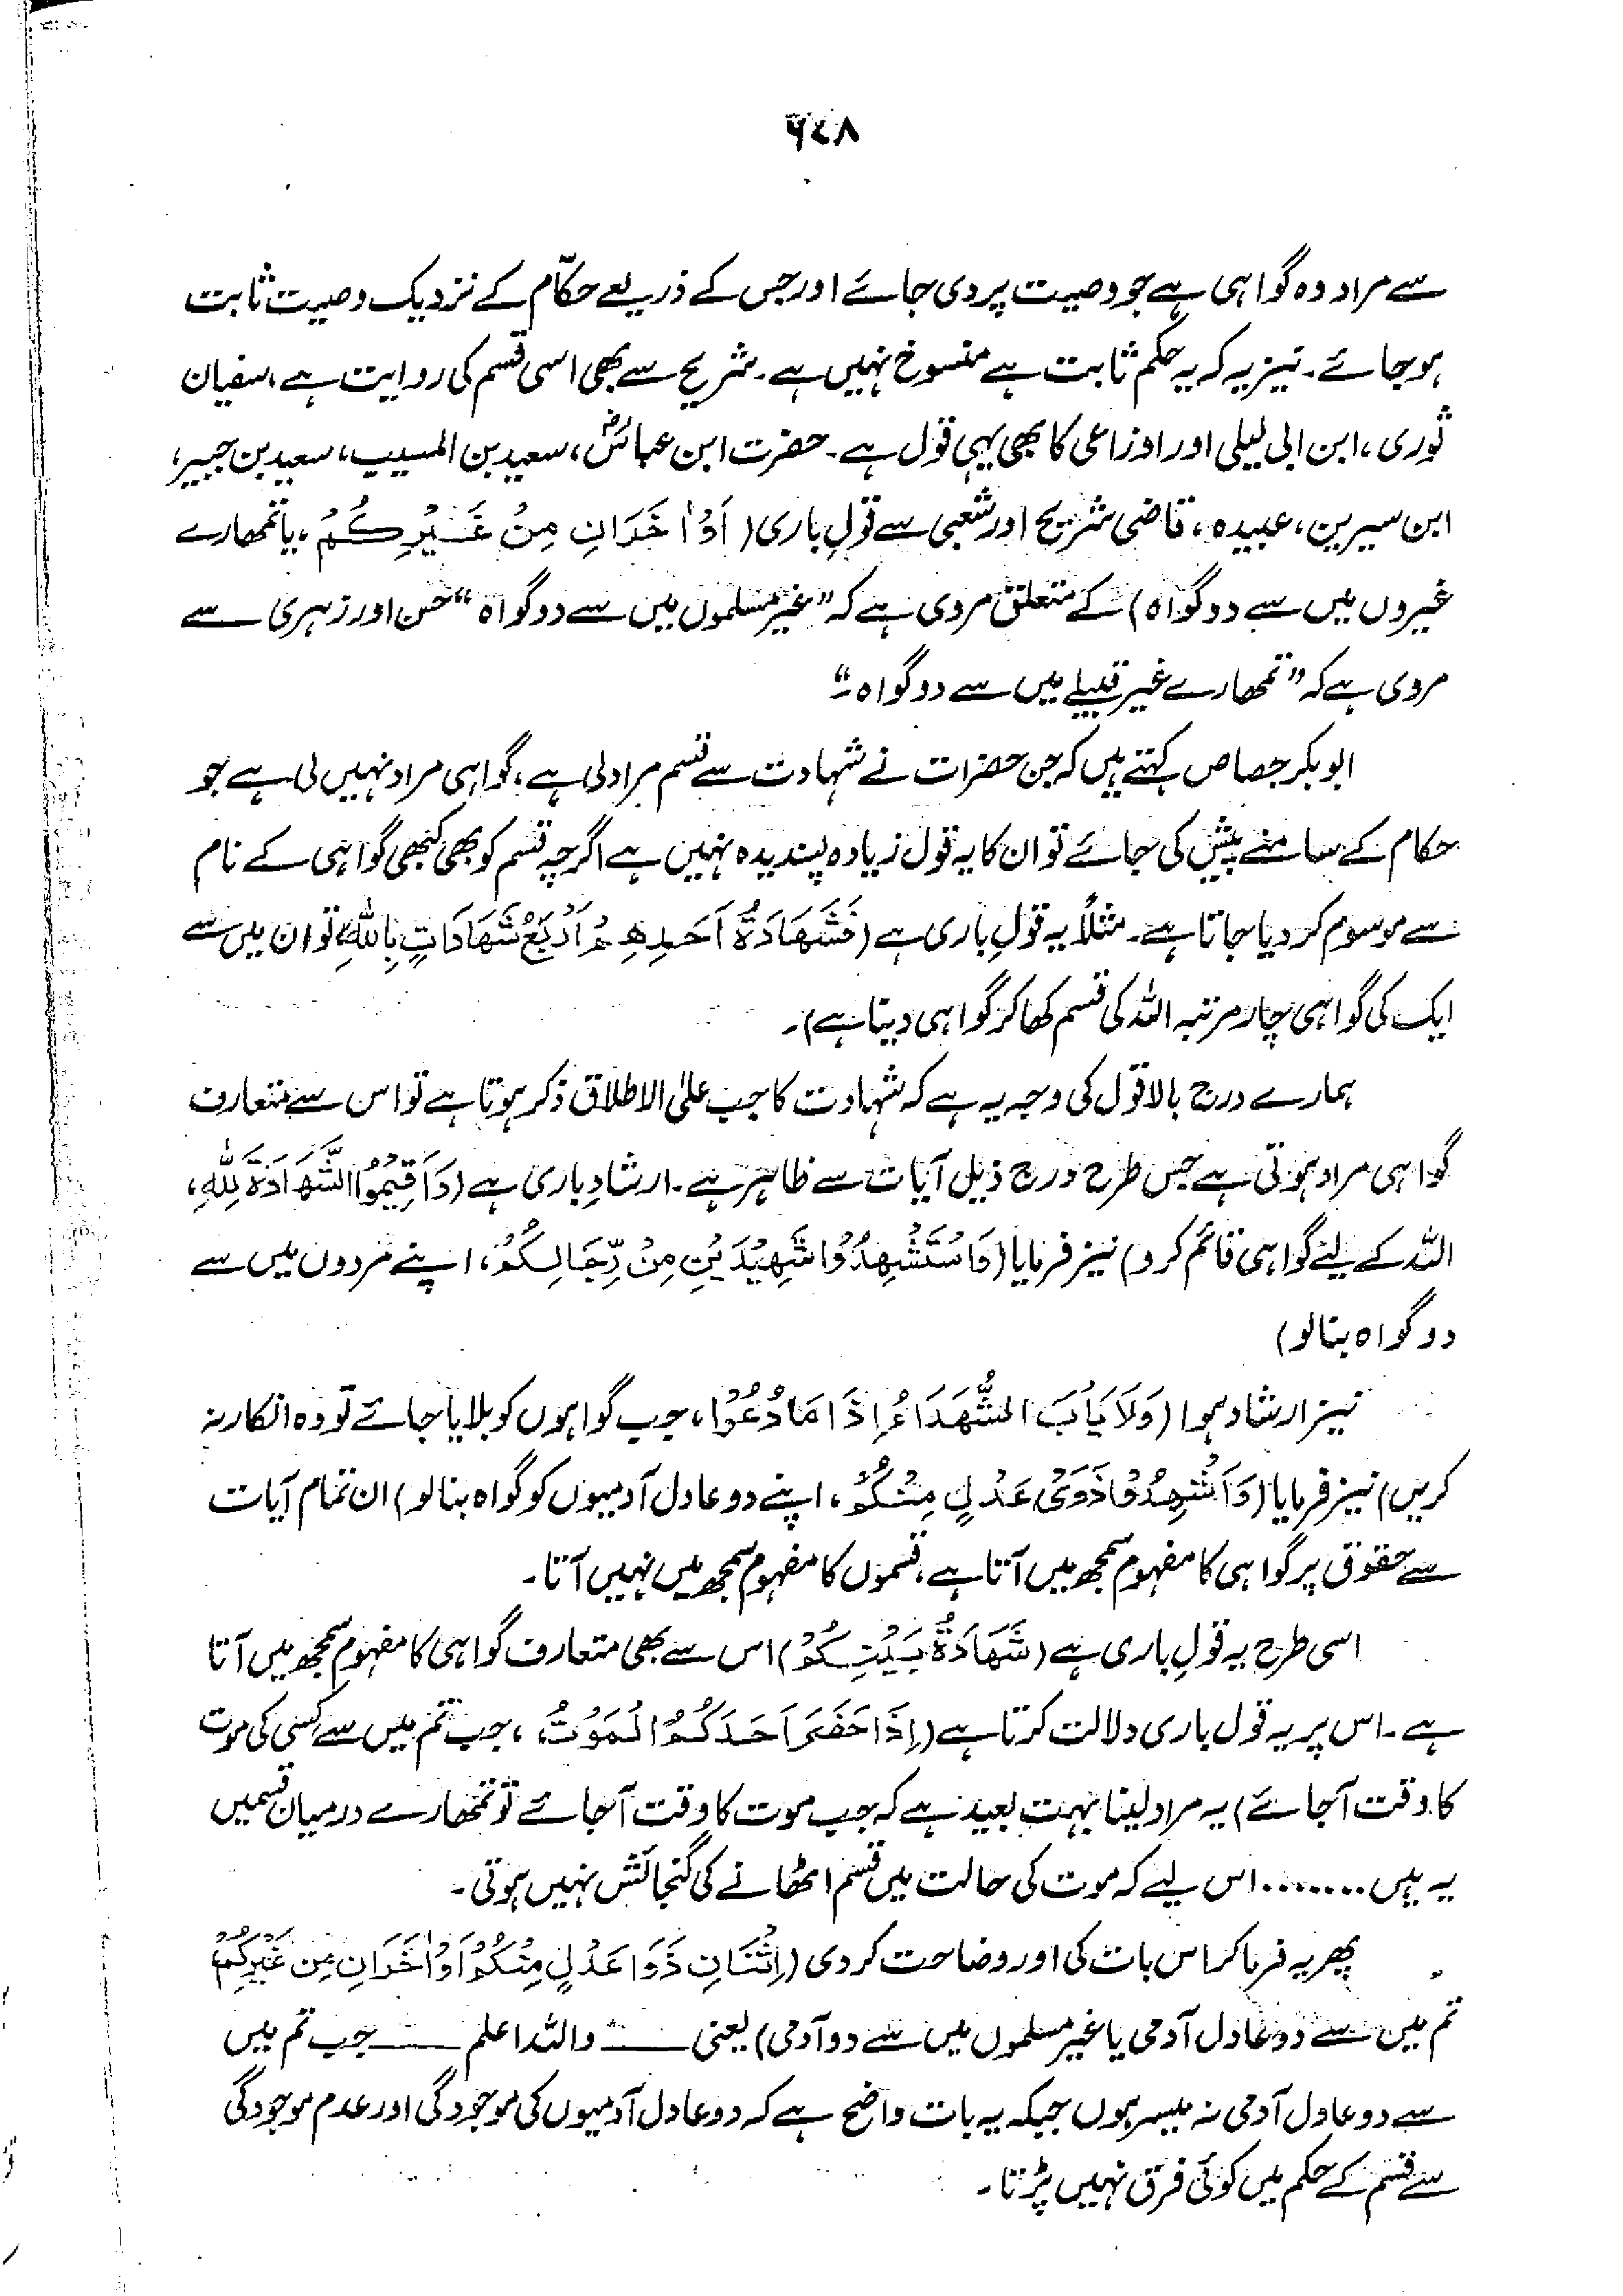 ۶۷۸
سے مراد وہ گواہی ہے جو وصیت پر دی جائے اور جس کے ذریعے حکّام کے نزدیک وصیت ثابت
ہو جائے۔ نیز یہ کہ یہ حکم ثابت ہے منسوخ نہیں ہے۔ شریح سے بھی اسی قسم کی روایت ہے، سفیان
ثوری، ابن ابی لیلی اور اوزاعی کا بھی یہی قول ہے۔ حضرت ابن عباسؓ، سعید بن المسیب، سعید بن جبیر،
ابن سیرین، عبیدہ، قاضی شریح اور شعبی سے قولِ باری (اَوْ اٰخَرَانِ مِنْ غَیْرِکُمْ، یا تمھارے
غیروں میں سے دو گواہ) کے متعلق مروی ہے کہ ”غیر مسلموں میں سے دو گواہ“ حسن اور زہری سے
مروی ہے کہ ”تمھارے غیر قبیلے میں سے دو گواہ۔“
ابوبکر جصاص کہتے ہیں کہ جن حضرات نے شہادت سے قسم مراد لی ہے، گواہی مراد نہیں لی ہے جو
حکام کے سامنے پیش کی جائے تو ان کا یہ قول زیادہ پسندیدہ نہیں ہے اگرچہ قسم کو بھی کبھی گواہی کے نام
سے موسوم کر دیا جاتا ہے۔ مثلاً یہ قولِ باری ہے (فَشَهَادَةُ اَحَدِهِمْ اَرْبَعُ شَهَادَاتٍ بِاللّٰهِ تو ان میں سے
ایک کی گواہی چار مرتبہ اللہ کی قسم کھا کر گواہی دینا ہے)۔
ہمارے درج بالا قول کی وجہ یہ ہے کہ شہادت کا جب علی الاطلاق ذکر ہوتا ہے تو اس سے متعارف
گواہی مراد ہوتی ہے جس طرح درج ذیل آیات سے ظاہر ہے۔ ارشادِ باری ہے (وَاَقِیْمُوا الشَّهَادَةَ لِلّٰهِ،
اللہ کے لیے گواہی قائم کرو) نیز فرمایا (وَاسْتَشْهِدُوْا شَهِیْدَیْنِ مِنْ رِّجَالِکُمْ، اپنے مردوں میں سے
دو گواہ بنا لو)
نیز ارشاد ہوا (وَلَا یَأْبَ الشُّهَدَاءُ اِذَا مَا دُعُوْا، جب گواہوں کو بلایا جائے تو وہ انکار نہ
کریں) نیز فرمایا (وَاَشْهِدُوْا ذَوَیْ عَدْلٍ مِنْکُمْ، اپنے دو عادل آدمیوں کو گواہ بنا لو) ان تمام آیات
سے حقوق پر گواہی کا مفہوم سمجھ میں آتا ہے، قسموں کا مفہوم سمجھ میں نہیں آتا۔
اسی طرح یہ قولِ باری ہے (شَهَادَةُ بَیْنِکُمْ) اس سے بھی متعارف گواہی کا مفہوم سمجھ میں آتا
ہے۔ اس پر یہ قول باری دلالت کرتا ہے (اِذَا حَضَرَ اَحَدَکُمُ الْمَوْتُ، جب تم میں سے کسی کی موت
کا وقت آجائے) یہ مراد لینا بہت بعید ہے کہ جب موت کا وقت آجائے تو تمھارے درمیان قسمیں
یہ ہیں ....... اس لیے کہ موت کی حالت میں قسم اٹھانے کی گنجائش نہیں ہوتی۔
پھر یہ فرما کر اس بات کی اور وضاحت کر دی (اِثْنَانِ ذَوَا عَدْلٍ مِنْکُمْ اَوْ اٰخَرَانِ مِنْ غَیْرِکُمْ
تم میں سے دو عادل آدمی یا غیر مسلموں میں سے دو آدمی) یعنی ـــــ واللہ اعلم ـــــ جب تم میں
سے دو عادل آدمی نہ میسر ہوں جبکہ یہ بات واضح ہے کہ دو عادل آدمیوں کی موجودگی اور عدم موجودگی
سے قسم کے حکم میں کوئی فرق نہیں پڑتا۔